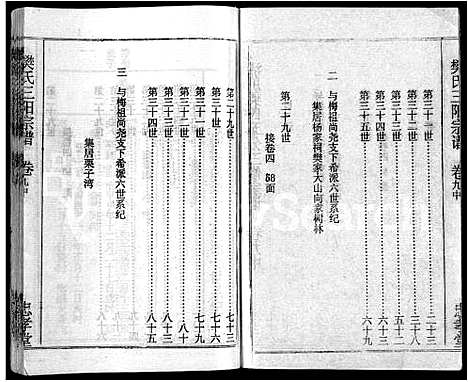 樊氏三阳宗谱 卷九中 忠孝堂
第三十一世 二十三
第三十二世 三十六
第三十三世 五十二
第三十四世 六十六
第三十五世 六十九
二 与梅祖尚尧支下希派六世系纪
集居杨家祠樊家大山向家树林
第二十九世
接卷四 58面
第二十九世 七十三
第三十世 七十六
第三十一世 七十九
第三十二世 八十
第三十三世 八十三
第三十四世 八十五
三 与梅祖尚尧支下希派六世系纪
集居栗子湾
樊氏三阳宗谱 卷九中 忠孝堂